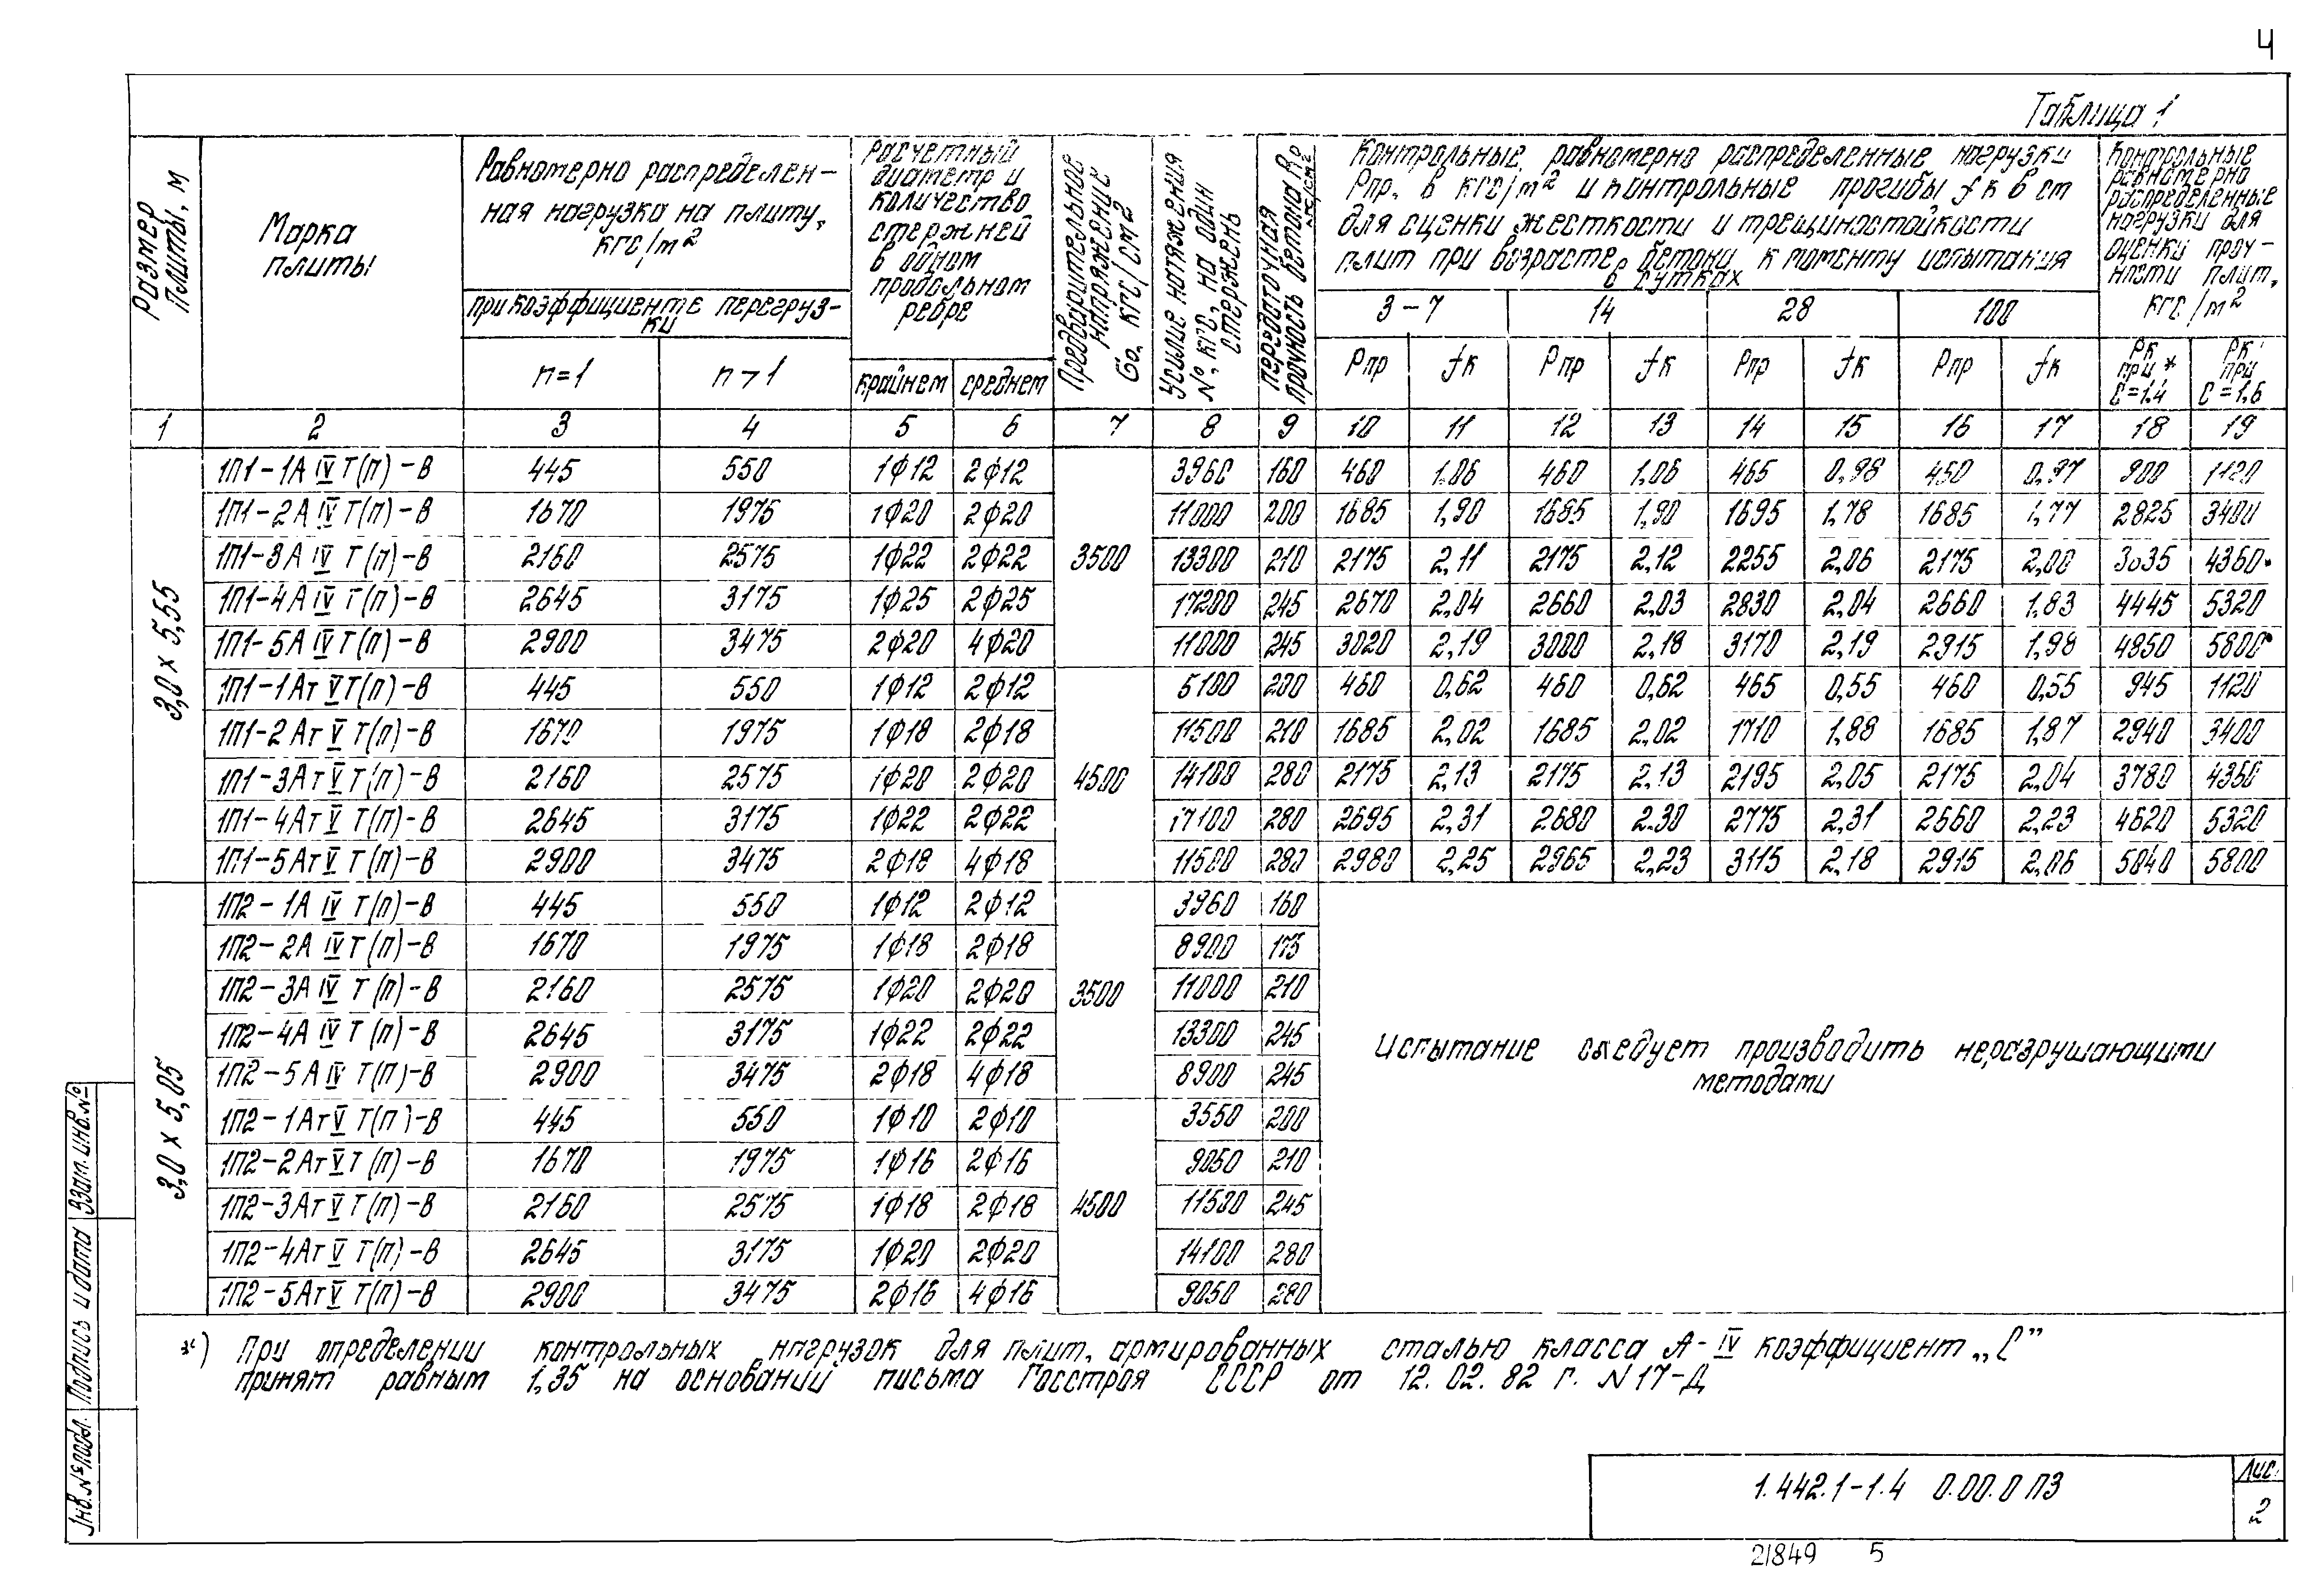 4
Таблица 1
Размер плиты, м
Марка плиты
Равномерно распределен-
ная нагрузка на плиту,
кгс/м2
при коэффициенте перегруз-
ки
n=1
n>1
Расчетный
диаметр и
количество
стержней
в одном
продольном
ребре
крайнем
среднем
Предварительное напряжение Gо, кгс/см2
Усилие натяжения N, кгс, на один стержень
Передаточная прочность бетона Rр кгс/см2
Контрольные, равномерно распределенные нагрузки
Рпр, в кгс/м2 и контрольные прогибы fк в см
для оценки жесткости и трещиностойкости
плит при возрасте бетона к моменту испытания
в сутках
3-7 14 28 100
Рпр fк Рпр fк Рпр fк Рпр fк
Контрольные
равномерно
распределенные
нагрузки для
оценки проч-
ности плит,
кгс/м2
Рк при * С=1.4
Рк при С=1,6
1 2 3 4 5 6 7 8 9 10 11 12 13 14 15 16 17 18 19
3,0 х 5,55
1П1-1А IV Т(п)-В 445 550 1ф12 2ф12 3960 160 460 1.06 460 1,06 465 0,98 450 0,97 900 1120
1П1-2А IV Т(п)-В 1670 1975 1ф20 2ф20 11000 200 1685 1,90 1685 1,90 1695 1,78 1685 1,77 2825 3400
1П1-3А IV Т(п)-В 2160 2575 1ф22 2ф22 3500 13300 210 2175 2,11 2175 2,12 2255 2,06 2175 2,00 3635 4360
1П1-4А IV Т(п)-В 2645 3175 1ф25 2ф25 17200 245 2670 2,04 2660 2,03 2830 2,04 2660 1,83 4445 5320
1П1-5А IV Т(п)-В 2900 3475 2ф20 4ф20 11000 245 3020 2,19 3000 2,18 3170 2,19 2915 1,98 4850 5800
1П1-1Ат V Т(п)-В 445 550 1ф12 2ф12 5100 200 460 0,62 460 0,62 465 0,55 460 0,55 945 1120
1П1-2Ат V Т(п)-В 1670 1975 1ф18 2ф18 11500 210 1685 2,02 1685 2,02 1710 1,88 1685 1,87 2940 3400
1П1-3Ат V Т(п)-В 2160 2575 1ф20 2ф20 4500 14100 280 2175 2,13 2175 2,13 2195 2,05 2175 2,04 3780 4360
1П1-4Ат V Т(п)-В 2645 3175 1ф22 2ф22 17100 280 2695 2,31 2680 2.30 2775 2,31 2660 2,23 4620 5320
1П1-5Ат V Т(п)-В 2900 3475 2ф18 4ф18 11500 280 2980 2,25 2965 2,23 3115 2,18 2915 2,06 5040 5800
3,0 х 5,05
1П2-1А IV Т(п)-В 445 550 1ф12 2ф12 3960 160
1П2-2А IV Т(п)-В 1670 1975 1ф18 2ф18 8900 175
1П2-3А IV Т(п)-В 2160 2575 1ф20 2ф20 3500 11000 210
1П2-4А IV Т(п)-В 2645 3175 1ф22 2ф22 13300 245
1П2-5А IV Т(п)-В 2900 3475 2ф18 4ф18 8900 245
1П2-1Ат V Т(п)-В 445 550 1ф10 2ф10 3550 200
1П2-2Ат V Т(п)-В 1670 1975 1ф16 2ф16 9050 210
1П2-3Ат V Т(п)-В 2160 2575 1ф18 2ф18 4500 11500 245
1П2-4Ат V Т(п)-В 2645 3175 1ф20 2ф20 14100 280
1П2-5Ат V Т(п)-В 2900 3475 2ф16 4ф16 9050 280
Испытание следует производить неразрушающими
методами
*) При определении контрольных нагрузок для плит, армированных сталью класса А-IV коэффициент „С”
принят равным 1,35 на основании письма Госстроя СССР от 12.02.82 г. N17-Д
Инв.№ подл. Подпись и дата Взам.инв.№
1.442.1-1.4 0.00.0 ПЗ
Лис.
2
21849 5